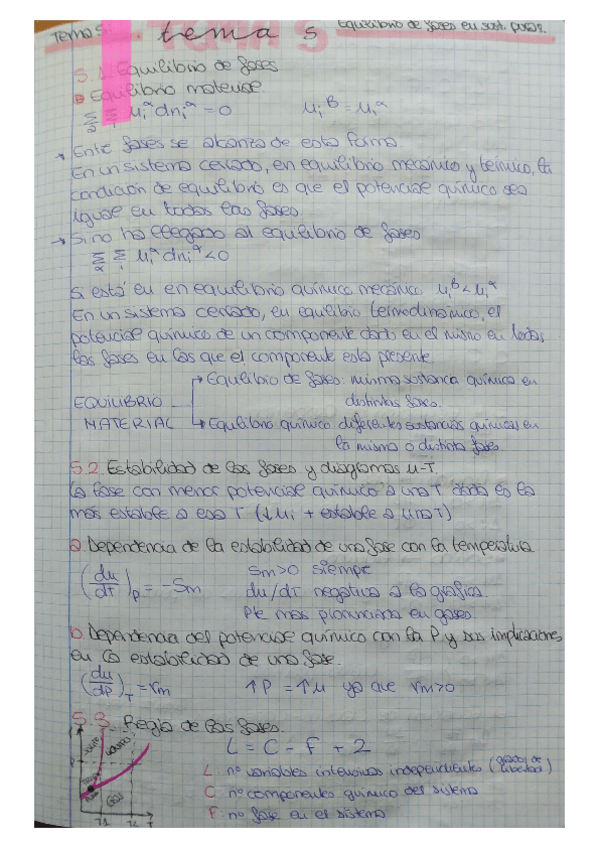 Tema 5: tema 5 Equilibrio de fases en sust. puras.
TEMA 5
5.1. Equilibrio de fases
Equilibrio material
Σ Σ μi^α dni^α = 0 μi^β = μi^α
α i
→ Entre fases se alcanza de esta forma.
En un sistema cerrado, en equilibrio mecánico y térmico, la
condición de equilibrio es que el potencial químico sea
igual en todas las fases.
→ Si no ha llegado al equilibrio de fases
Σ Σ μi^α dni^α < 0
α i
Si está en en equilibrio químico mecánico μi^β < μi^α
En un sistema cerrado, en equilibrio termodinámico, el
potencial químico de un componente dado en el mismo en todas
las fases en las que el componente esta presente.
EQUILIBRIO MATERIAL
→ Equilibrio de fases: misma sustancia química en
distintas fases.
→ Equilibrio químico diferentes sustancias químicas en
la misma o distinta fase
5.2. Estabilidad de las fases y diagramas μ-T.
La fase con menor potencial químico a una T dada es la
más estable a esa T (↓μi + estable a una T)
a. Dependencia de la estabilidad de una fase con la temperatura
(dμ/dT)P = -Sm Sm>0 siempre
dμ/dT negativa a la gráfica.
Pte más pronunciada en gases.
b. Dependencia del potencial químico con la P y sus implicaciones
en la estabilidad de una fase.
(dμ/dP)T = Vm ↑P = ↑μ ya que Vm>0
5.3. Regla de las fases.
L = C - F + 2
L: nº variables intensivas independiente (grados de libertad)
C: nº componentes químico del sistema
F: nº fase en el sistema
P
GAS
T1 T2 T